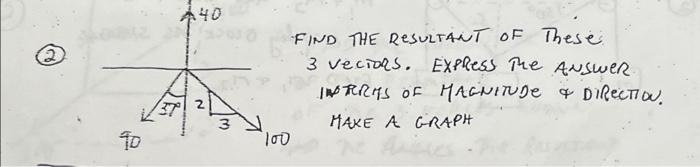 40
② FIND THE RESULTANT OF These
3 VECTORS. EXPRESS THE ANSWER
IN TERMS OF MAGNITUDE & DIRECTION.
MAKE A GRAPH
37° 2
3
90 100